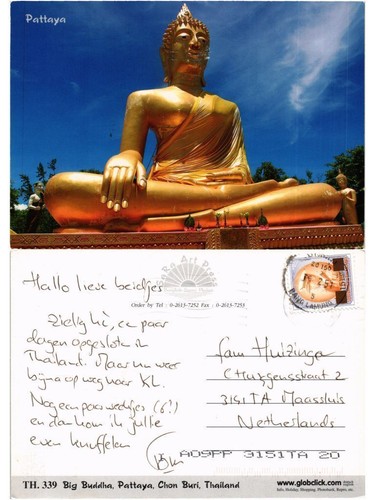 Pattaya
Hallo lieve beidjes
Order by Tel : 0-2613-7252 Fax : 0-2613-7253
Zielig hè, en paar
dagen opgesloten in
Thailand. Maar nu weer
bijna op weg naar KL.
Nog een paar weekjes (6!)
en dan kom ik jullie
even knuffelen
Fam Huizinga
Chr. Huygensstraat 2
3151TA Maassluis
Netherlands
A09PP 3151TA 20
TH. 339 Big Buddha, Pattaya, Chon Buri, Thailand
www.globclick.com